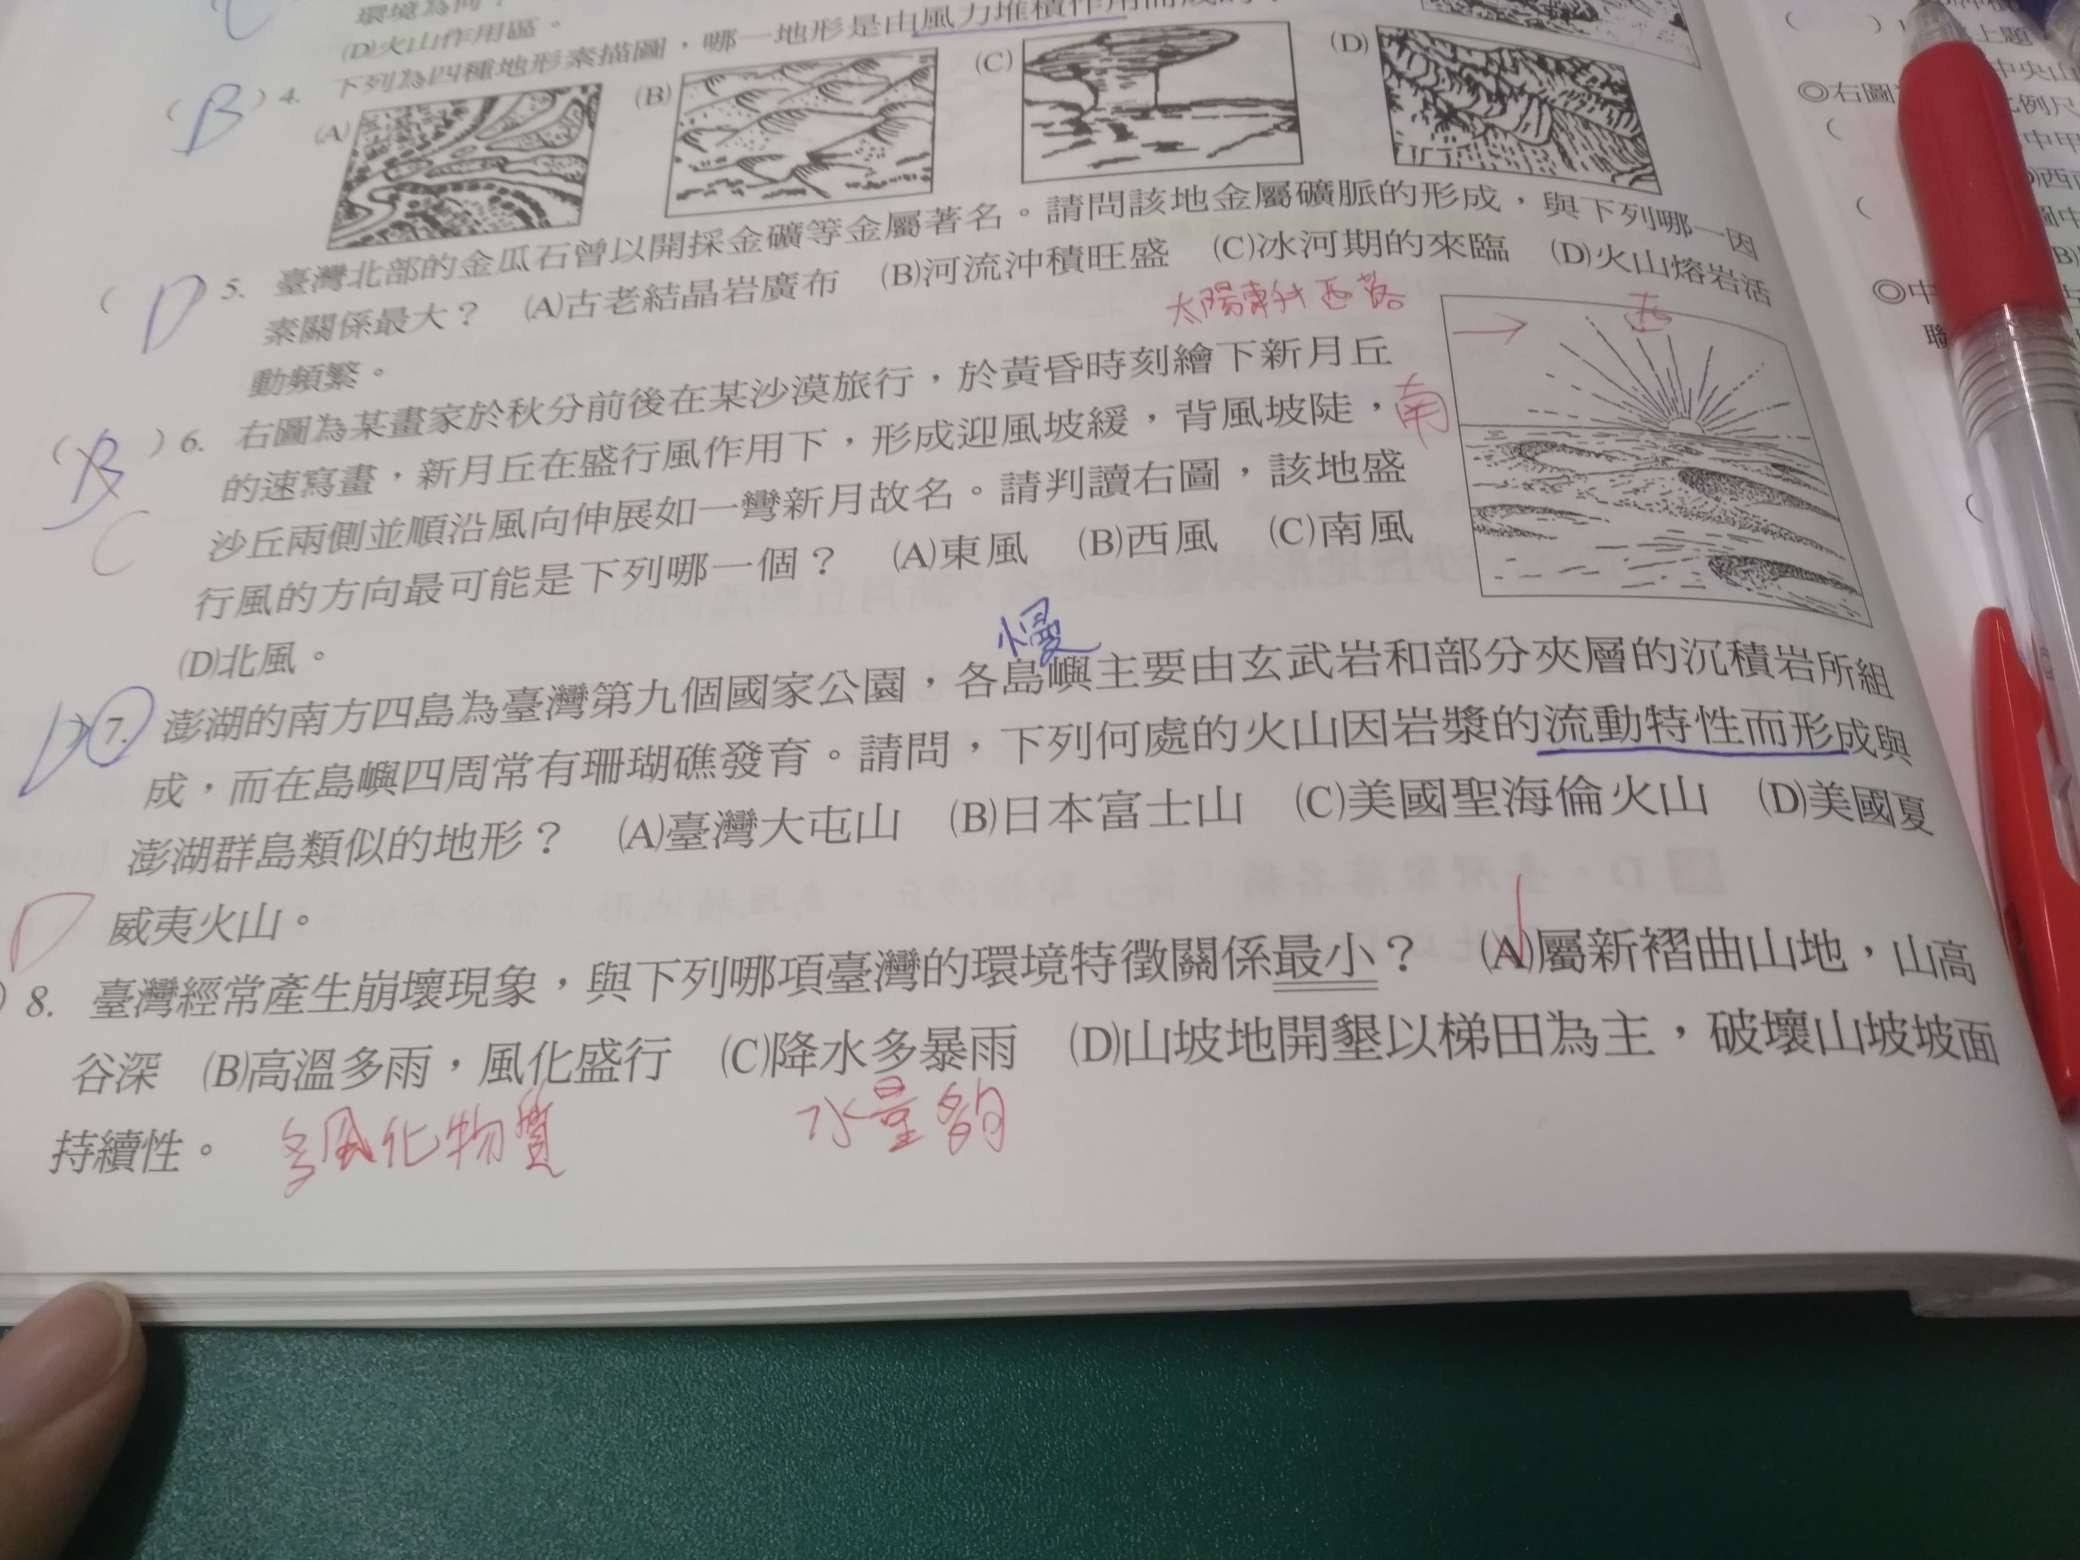 環境為何？
(D)火山作用區。
(B) 4. 下列為四種地形素描圖，哪一地形是由風力堆積作用而成的
(A) (B) (C) (D)
(D) 5. 臺灣北部的金瓜石曾以開採金礦等金屬著名。請問該地金屬礦脈的形成，與下列哪一因
素關係最大？ (A)古老結晶岩廣布 (B)河流沖積旺盛 (C)冰河期的來臨 (D)火山熔岩活
動頻繁。
太陽東升西落
西
(B) 6. 右圖為某畫家於秋分前後在某沙漠旅行，於黃昏時刻繪下新月丘
的速寫畫，新月丘在盛行風作用下，形成迎風坡緩，背風坡陡，
南
C
沙丘兩側並順沿風向伸展如一彎新月故名。請判讀右圖，該地盛
行風的方向最可能是下列哪一個？ (A)東風 (B)西風 (C)南風
(D)北風。
慢
D) 7. 澎湖的南方四島為臺灣第九個國家公園，各島嶼主要由玄武岩和部分夾層的沉積岩所組
成，而在島嶼四周常有珊瑚礁發育。請問，下列何處的火山因岩漿的流動特性而形成與
澎湖群島類似的地形？ (A)臺灣大屯山 (B)日本富士山 (C)美國聖海倫火山 (D)美國夏
威夷火山。
D
) 8. 臺灣經常產生崩壞現象，與下列哪項臺灣的環境特徵關係最小？ (A)屬新褶曲山地，山高
谷深 (B)高溫多雨，風化盛行 (C)降水多暴雨 (D)山坡地開墾以梯田為主，破壞山坡坡面
持續性。
多風化物質
水量夠
上題
中央山
◎右圖
比例尺
中甲
西
圖中
◎中
聯